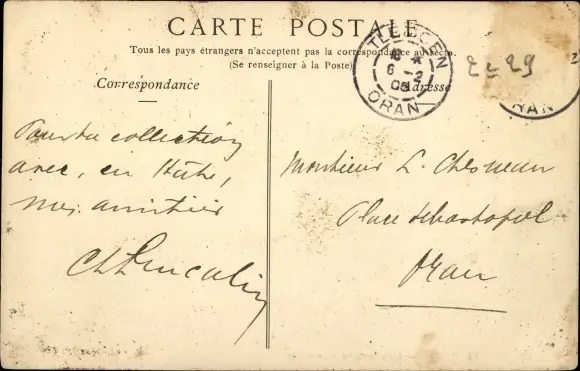 CARTE POSTALE
Tous les pays étrangers n'acceptent pas la correspondance au recto.
(Se renseigner à la Poste)
Correspondance
Adresse
TLEMCEN
6 -2
05
ORAN
2=29
RAN
Pour ta collection
avec, en hâte,
mes amitiés
Monsieur L.
Place Sébastopol
Oran